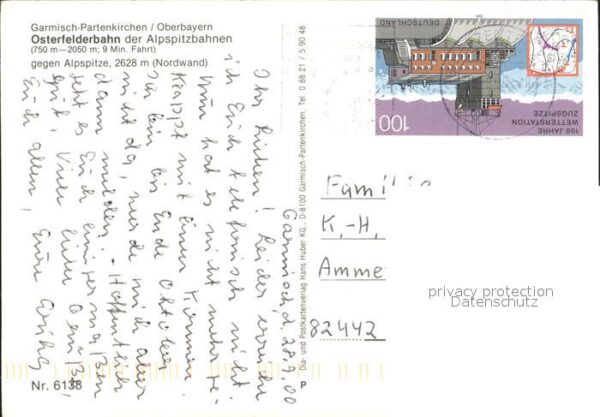 Garmisch-Partenkirchen / Oberbayern
Osterfelderbahn der Alpspitzbahnen
(750 m—2050 m; 9 Min. Fahrt)
gegen Alpspitze, 2628 m (Nordwand)
Garmisch, d. 28.9.00
Ihr Lieben! Leider erreiche
ich Euch telefonisch nicht.
Nun hat es nicht mehr ge-
klappt mit einem Kommen.
Ich bin bis Ende Oktober
nicht da, werde mich aber
dann melden. Hoffentlich
geht es Euch einigermaßen
gut. Viele liebe Grüße,
Euch allen, Eure
Dia- und Postkartenverlag Hans Huber KG., D-8100 Garmisch-Partenkirchen, Tel. 0 88 21 / 5 90 48
DEUTSCHLAND
100 JAHRE
WETTERSTATION
ZUGSPITZE
100
Familie
K.-H,
Amme
82442
privacy protection
Datenschutz
Nr. 6138
P